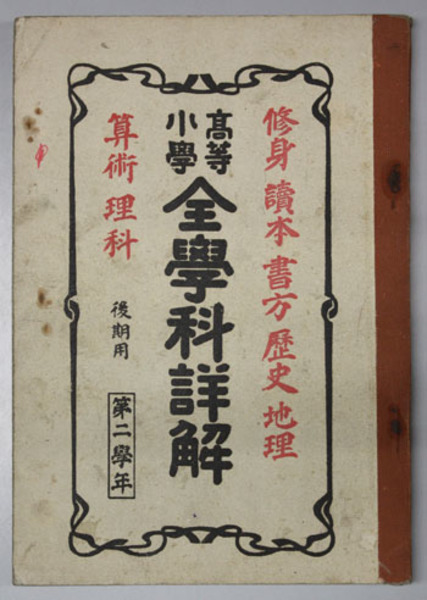 修身 讀本 書方 歷史 地理
高等
小學
全學科詳解
算術 理科
後期用
第二學年